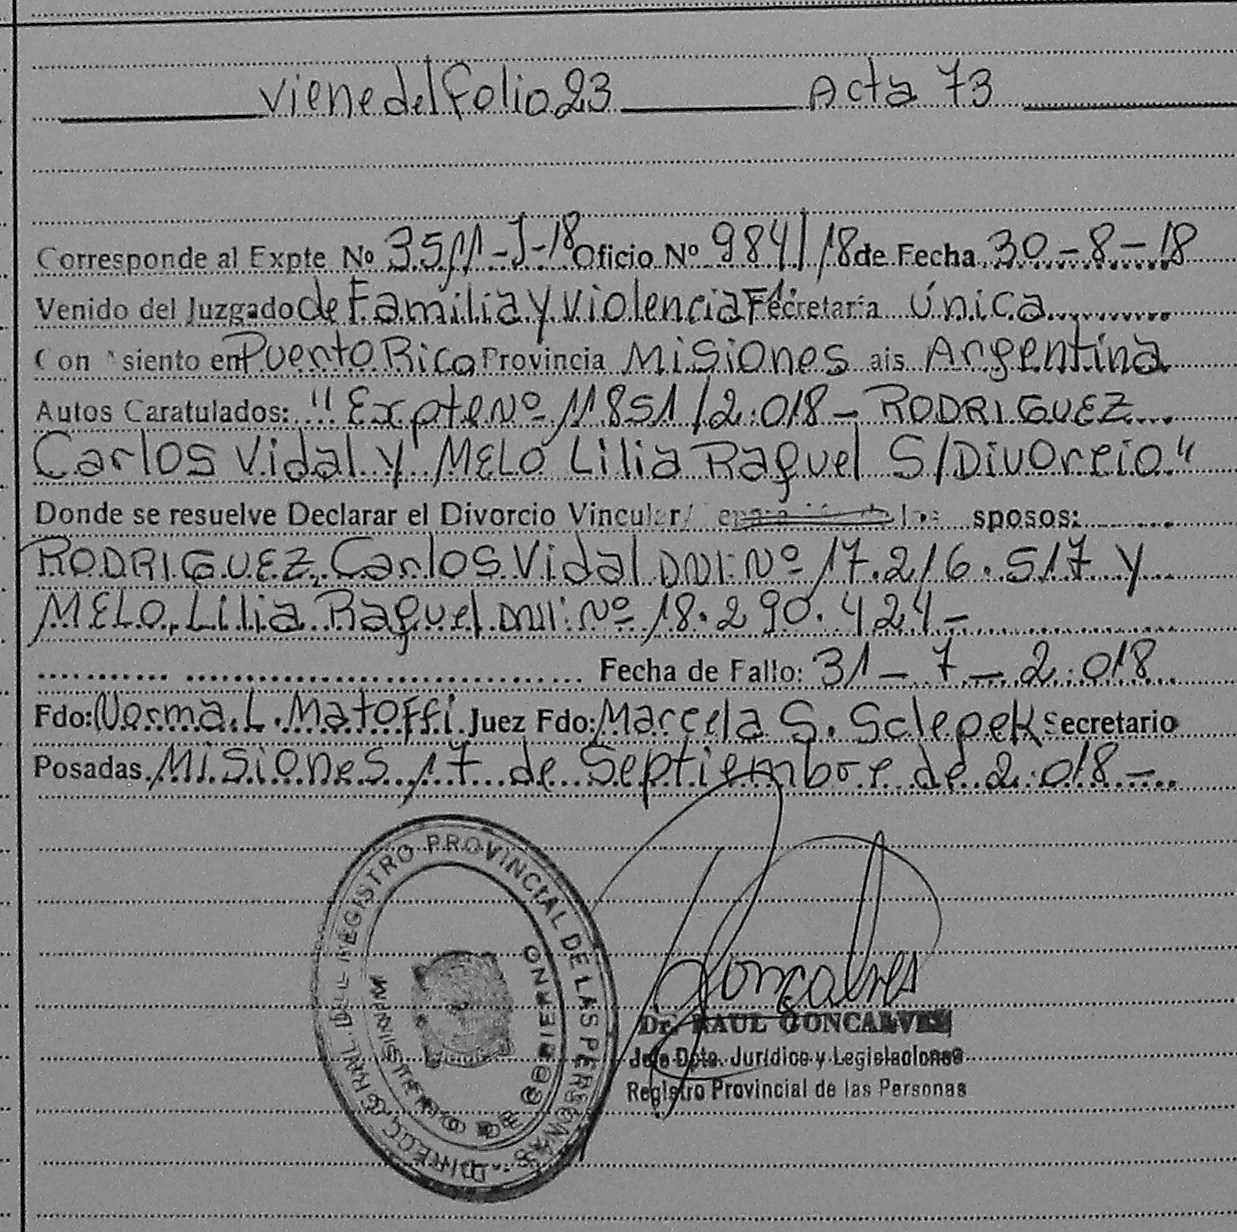 viene del folio 23 Acta 73
Corresponde al Expte Nº 3511-J-18 Oficio Nº 984/18 de Fecha 30-8-18
Venido del Juzgado de Familia y Violencia Secretaría Única
Con siento en Puerto Rico Provincia Misiones ais Argentina
Autos Caratulados: "Expte Nº 11851/2.018 - RODRIGUEZ
Carlos Vidal y MELO Lilia Raquel S/Divorcio"
Donde se resuelve Declarar el Divorcio Vincular/ sposos:
RODRIGUEZ, Carlos Vidal DNI: Nº 17.216.517 y
MELO, Lilia Raquel DNI: Nº 18.290.424-
Fecha de Fallo: 31-7-2.018
Fdo: Norma. L. Matoffi Juez Fdo: Marcela S. Sclepek Secretario
Posadas Misiones 17 de Septiembre de 2.018-
DIRECC. GRAL. DEL REGISTRO PROVINCIAL DE LAS PERSONAS
MINISTERIO DE GOBIERNO
Goncalves
Dr. RAUL GONCALVES
Jefe Dpto. Jurídico y Legislaciones
Registro Provincial de las Personas